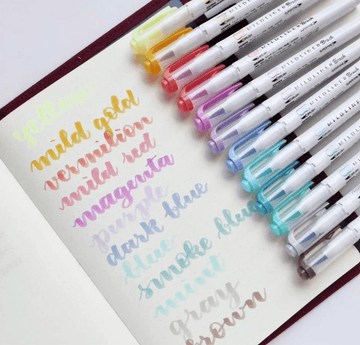 yellow
mild gold
vermilion
mild red
magenta
purple
dark blue
blue
smoke blue
mint
gray
brown
MILDLINER Brush